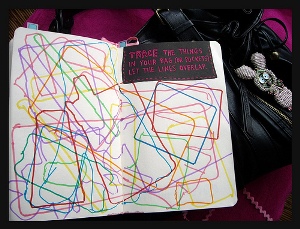 TRACE THE THINGS
IN YOUR BAG (OR POCKETS)
LET THE LINES OVERLAP.